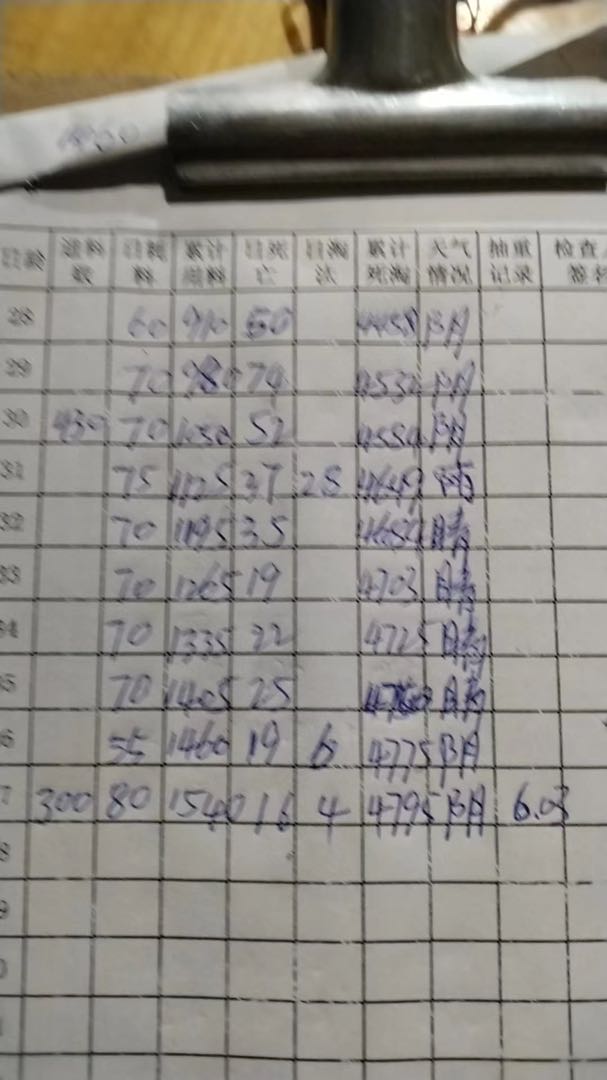 日龄 进料数 日耗料 累计用料 日死亡 日淘汰 累计死淘 天气情况 抽重记录 检查人签名
28 60 910 50 4458 阴
29 70 980 74 4532 阴
30 430 70 1050 52 4584 阴
31 75 1125 37 28 4649
32 70 1195 35 4684 晴
33 70 1265 19 4703 晴
34 70 1335 22 4725 晴
70 1405 25 晴
55 1460 19 6 4775 阴
7 300 80 1540 16 4 4795 阴 6.03
8
9